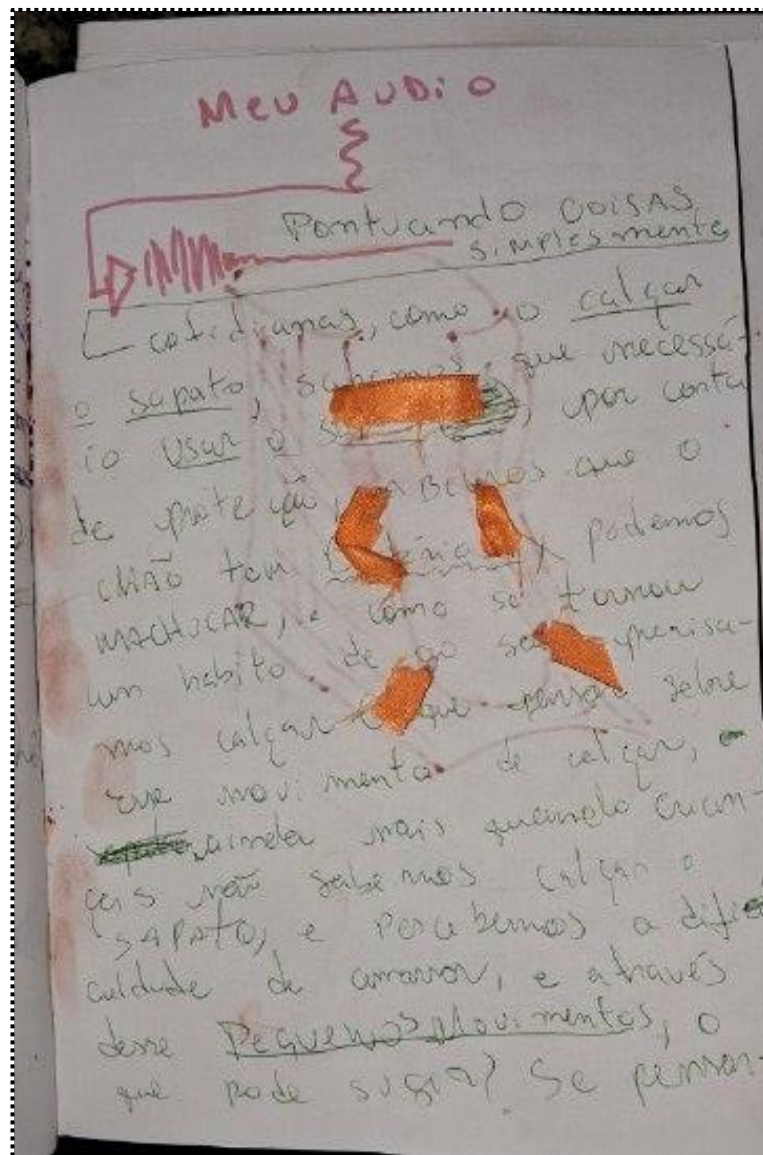 MEU AUDIO
Pontuando COISAS
SIMPLESmente
cotidianas, como o calçar
o sapato, sabemos que necessá-
io usar o por conta
de proteção, sabemos que o
CHÃO tem podemos
MACHUCAR, e como se tornou
um habito de precisa-
mos calçar que pensar sobre
esse movimento de calçar,
ainda mais quando crian-
ças não sabemos calçar o
SAPATO, e percebemos a difi
culdade de amarrar, e através
desse PEQUENOS MOVIMENTOS, o
que pode sugir? Se pensar-